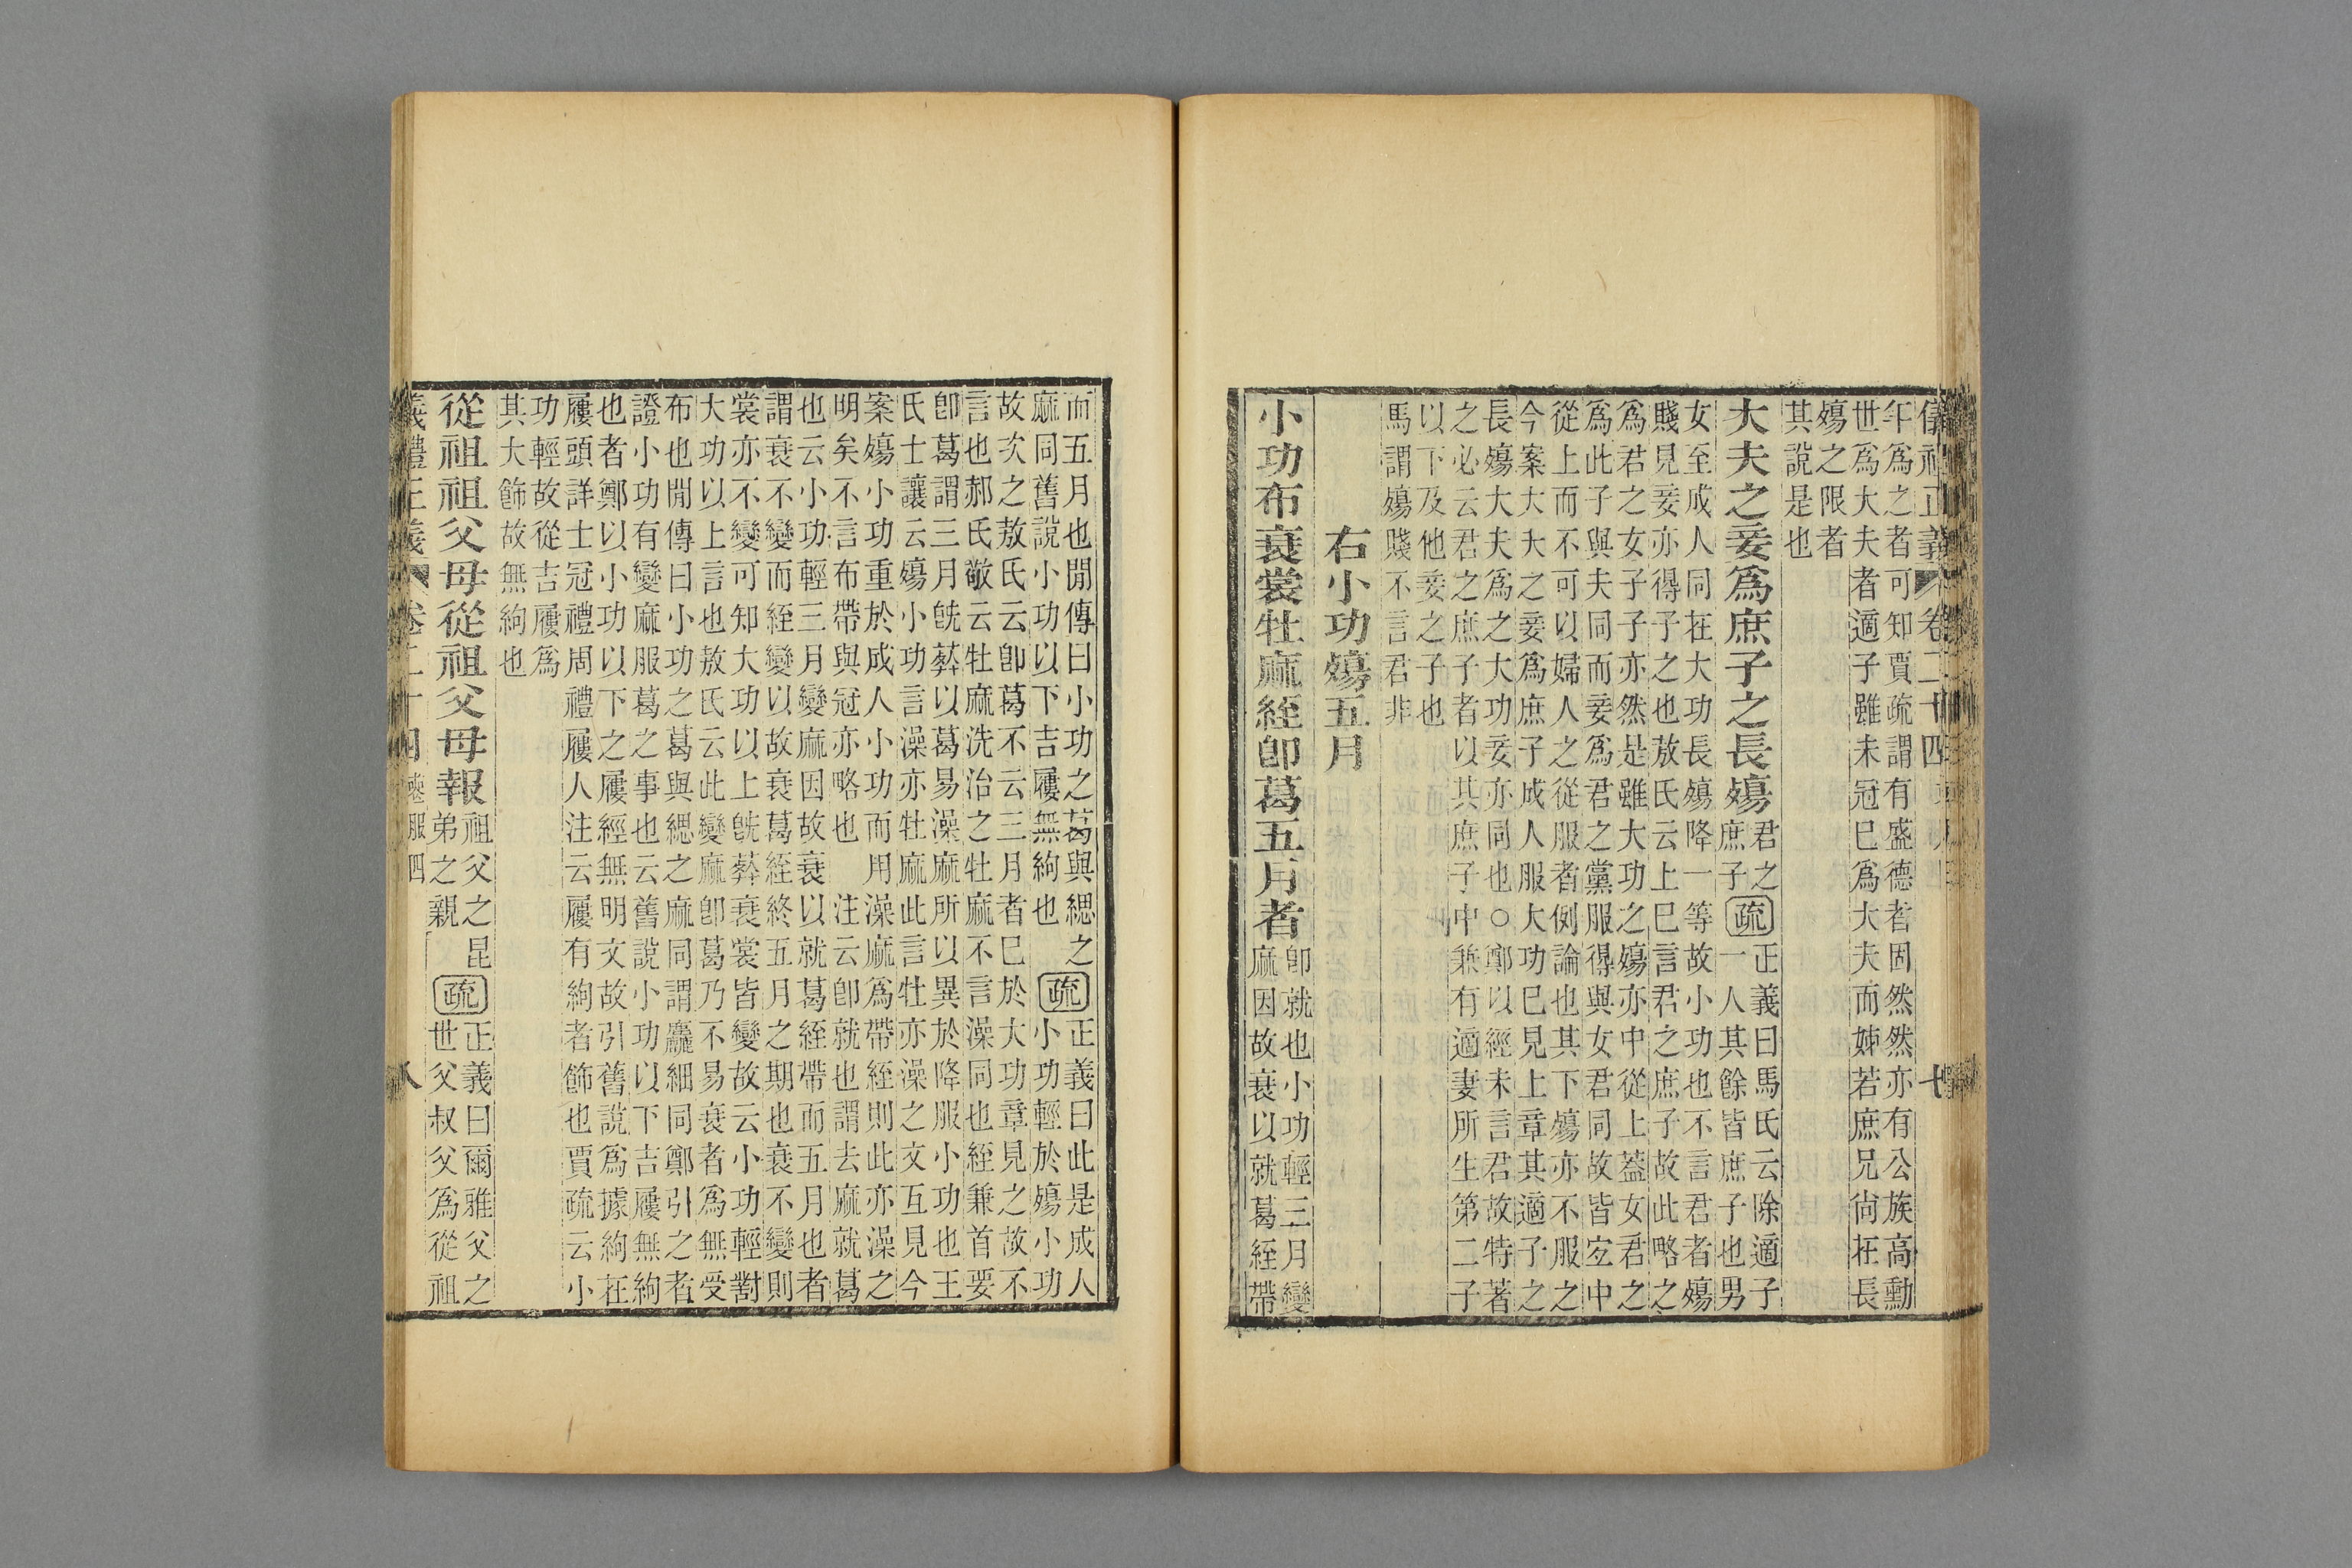 儀禮正義 卷二十四 七
年爲之者可知賈疏謂有盛德者固然然亦有公族高勳
世爲大夫者適子雖未冠已爲大夫而姊若庶兄尚在長
殤之限者
其說是也
大夫之妾爲庶子之長殤
君之
庶子
疏
正義曰馬氏云除適子
一人其餘皆庶子也男
女至成人同在大功長殤降一等故小功也不言君者殤
賤見妾亦得子之也敖氏云上已言君之庶子故此略之
爲君之女子子亦然是雖大功之殤亦中從上蓋女君之
爲此子與夫同而妾爲君之黨服得與女君同故皆宜中
從上而不可以婦人之從服者例論也其下殤亦不服之
今案大夫之妾爲庶子成人服大功已見上章其適子之
長殤大夫爲之大功妾亦同也○鄭以經未言君故特著
之必云君之庶子者以其庶子中兼有適妻所生第二子
以下及他妾之子也
馬謂殤賤不言君非
右小功殤五月
小功布衰裳牡麻絰卽葛五月者
卽就也小功輕三月變
麻因故衰以就葛絰帶
而五月也閒傳曰小功之葛與緦之
麻同舊說小功以下吉屨無絇也
疏
正義曰此是成人
小功輕於殤小功
故次之敖氏云卽葛不云三月者已於大功章見之故不
言也郝氏敬云牡麻洗治之牡麻不言澡同也絰兼首要
卽葛謂三月旣葬以葛易澡麻所以異於降服小功也王
氏士讓云殤小功言澡亦牡麻此言牡亦澡之文互見今
案殤小功重於成人小功而用澡麻爲帶絰則此亦澡之
明矣不言布帶與冠亦略也 注云卽就也謂去麻就葛
也云小功輕三月變麻因故衰以就葛絰帶而五月也者
謂衰不變而絰變以故衰葛絰終五月之期也衰不變則
裳亦不變可知大功以上旣葬衰裳皆變故云小功輕對
大功以上言也敖氏云此變麻卽葛乃不易衰者爲無受
布也閒傳曰小功之葛與緦之麻同謂麤細同鄭引之者
證小功有變麻服葛之事也云舊說小功以下吉屨無絇
也者鄭以小功以下之屨經無明文故引舊說爲據絇在
屨頭詳士冠禮周禮屨人注云屨有絇者飾也賈疏云小
功輕故從吉屨爲
其大飾故無絇也
從祖祖父母從祖父母報
祖父之昆
弟之親
疏
正義曰爾雅父之
世父叔父爲從祖
義禮正義 卷二十四 喪服四 八